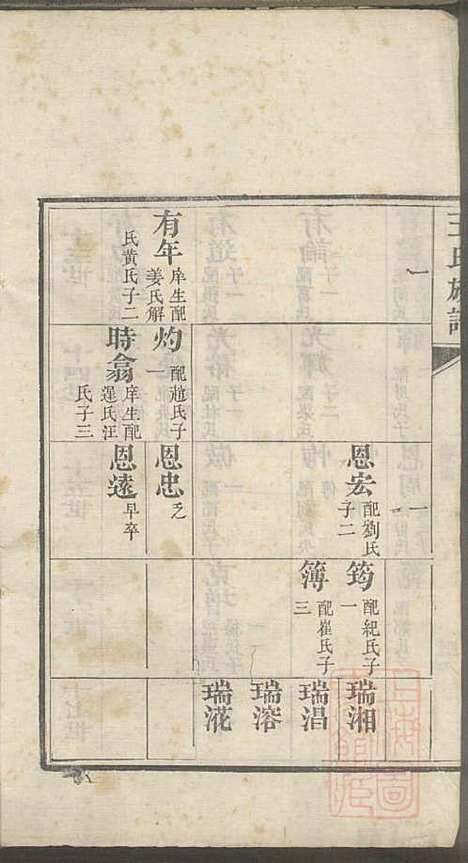 王氏族譜
一
有年 庠生配姜氏解氏黃氏子二
灼 配趙氏子一
時翕 庠生配 氏汪氏子三
一
恩宏 配劉氏子二
恩忠 乏
恩遠 早卒
筠 配紀氏子一
簿 配崔氏子三
瑞湘
瑞淐
瑞溶
瑞